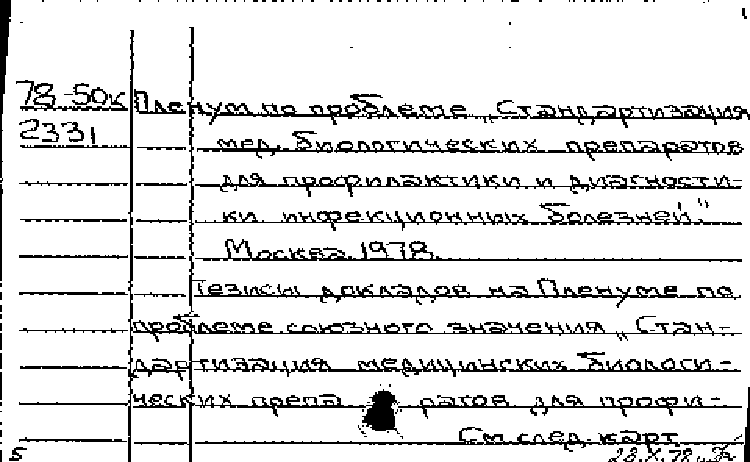 78-50к Пленум по проблеме „Стандартизация
2331 мед. биологических препаратов
для профилактики и диагности-
ки инфекционных болезней."
Москва. 1978.
Тезисы докладов на Пленуме по
проблеме союзного значения „Стан-
дартизация медицинских биологи-
ческих препа ратов для профи-
См. след. карт.
5 28.X.78